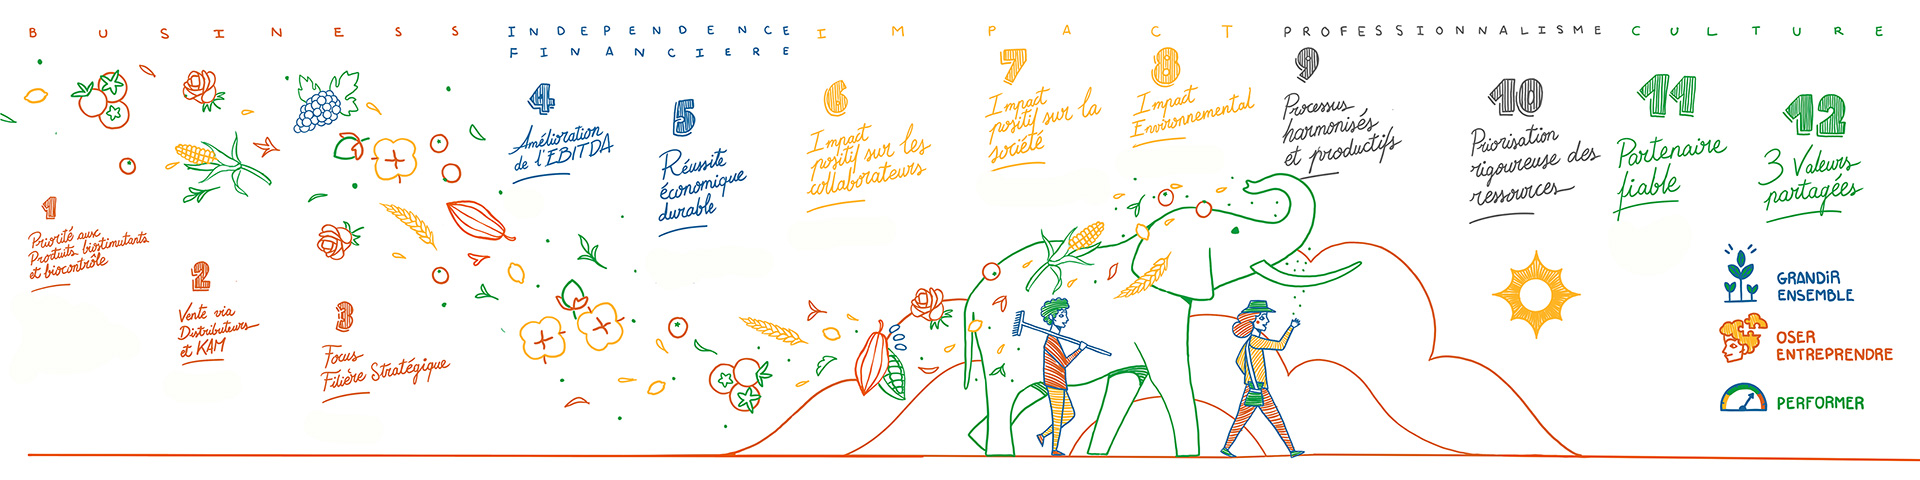 BUSINESS
1
Priorité aux
Produits biostimutants
et biocontrôle
2
Vente via
Distributeurs
et KAM
3
Focus
Filière Stratégique
INDEPENDENCE
FINANCIERE
4
Amélioration
de l'EBITDA
5
Réussite
économique
durable
IMPACT
6
Impact
positif sur les
collaborateurs
7
Impact
positif sur la
société
8
Impact
Environnemental
PROFESSIONNALISME
9
Processus
harmonisés
et productifs
10
Priorisation
rigoureuse des
ressources
CULTURE
11
Partenaire
fiable
12
3 Valeurs
partagées
GRANDIR
ENSEMBLE
OSER
ENTREPRENDRE
PERFORMER